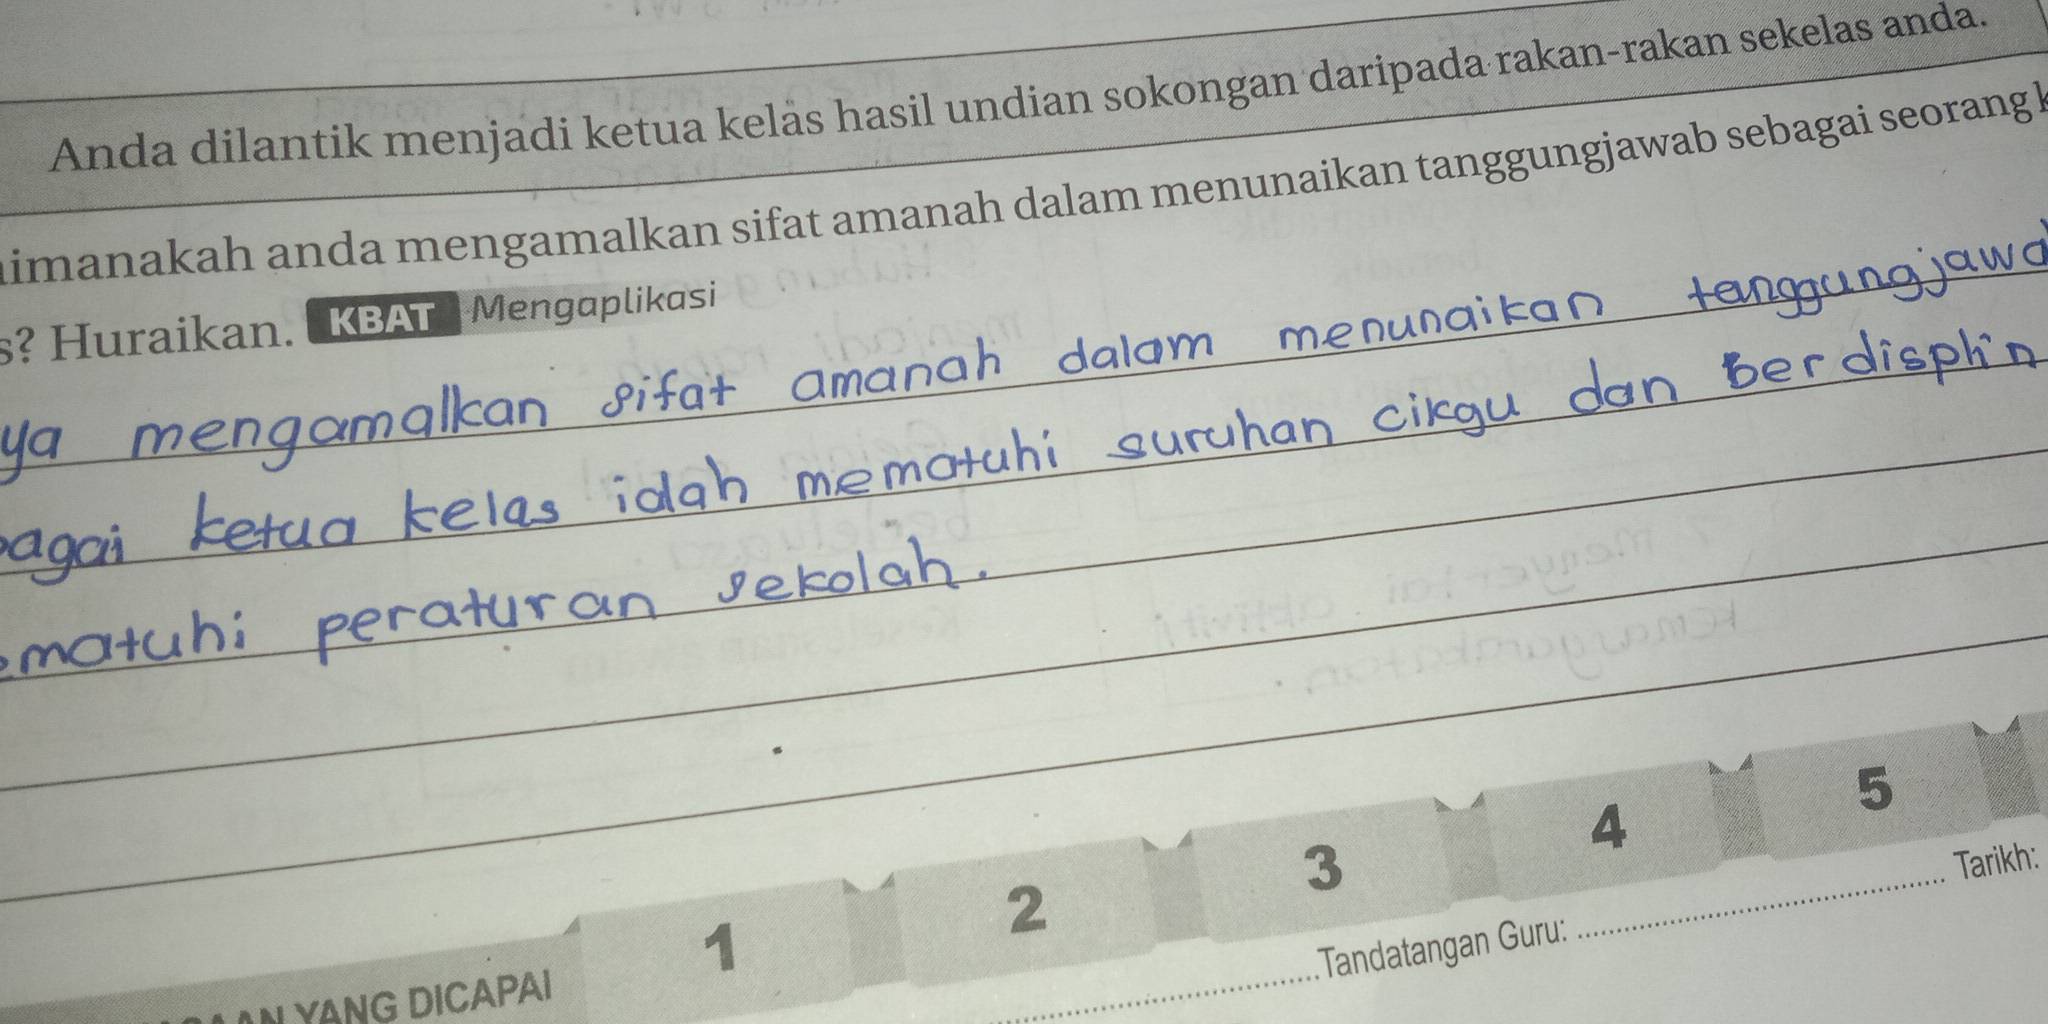 Anda dilantik menjadi ketua kelas hasil undian sokongan daripada rakan-rakan sekelas anda.
imanakah anda mengamalkan sifat amanah dalam menunaikan tanggungjawab sebagai seorang k
s? Huraikan. KBAT Mengaplikasi
ya mengamalkan sifat amanah dalam menunaikan tanggungjawa
bagai ketua kelas idah mematuhi suruhan cikgu dan berdisplin
ematuhi peraturan sekolah.
1 2 3 4 5
AAN YANG DICAPAI
Tandatangan Guru: Tarikh: